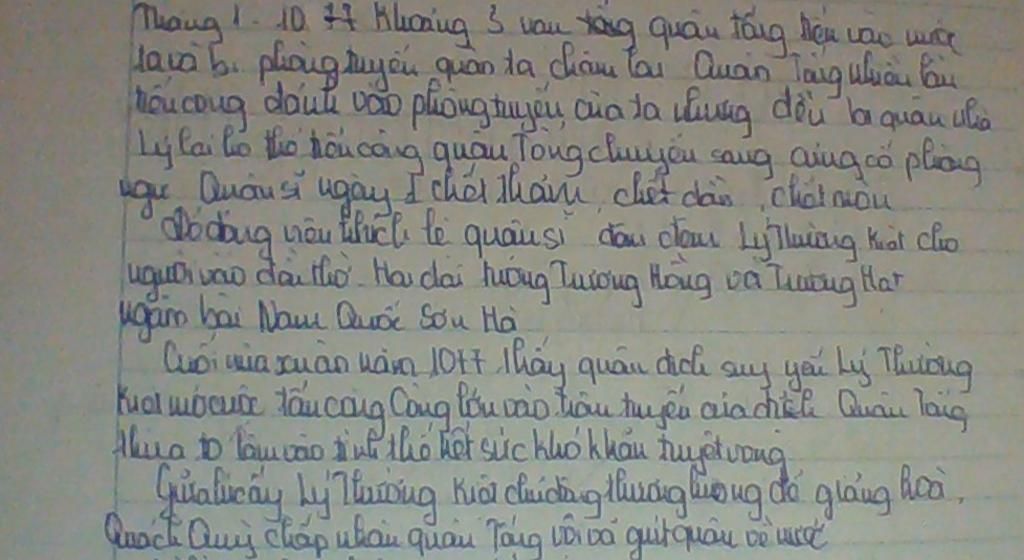 Tháng 1 - 1077 Khoảng 3 vạn quân Tống tiến vào nước
ta và bị phòng tuyến quân ta chặn lại Quân Tống nhiều lần
tấn công đánh vào phòng tuyến của ta nhưng đều bị quân nhà
Lý thế tấn công quân Tống chuyển sang củng cố phòng
ngự Quân sĩ ngày 1 chết thảm, chết dần, chết mòn
Để động viên khích lệ quân sĩ đêm đêm Lý Thường Kiệt cho
người vào đền thờ Hai đại tướng Trương Hống và Trương Hát
ngâm bài Nam Quốc Sơn Hà
Cuối mùa xuân năm 1077 thấy quân địch suy yếu Lý Thường
Kiệt mở cuộc tấn công lớn vào trận tuyến của địch Quân Tống
thua to lâm vào tình thế hết sức khó khăn tuyệt vọng
Giữa lúc ấy Lý Thường Kiệt chủ động thương lượng đề giảng hoà,
Quách Quỳ chấp nhận quân Tống vội vã rút quân về nước